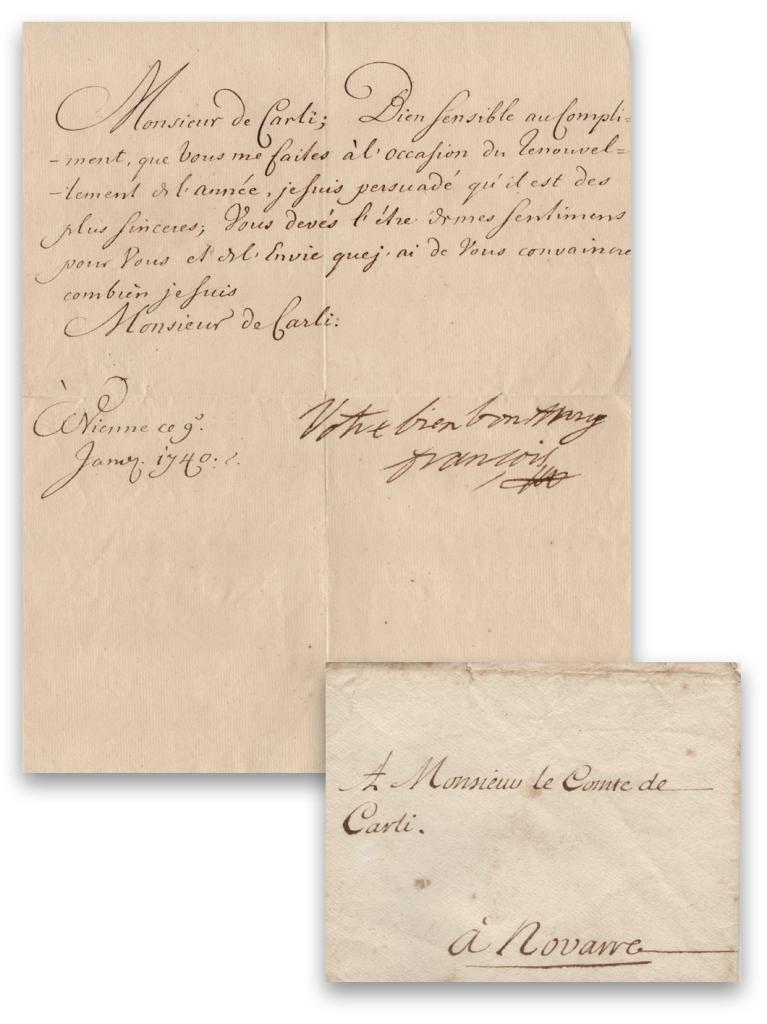 Monsieur de Carli; Bien sensible au Compli=
-ment, que Vous me faites à l'occasion du renouvel=
-lement de l'année, je suis persuadé qu'il est des
plus sinceres; Vous devés l'être de mes sentimens
pour Vous et de l'Envie que j'ai de Vous convaincre
combien je suis
Monsieur de Carli.
à Vienne ce 9.
Janv. 1740.
Votre bien bon Amy
françois
A Monsieur le Comte de
Carli.
à Novarre